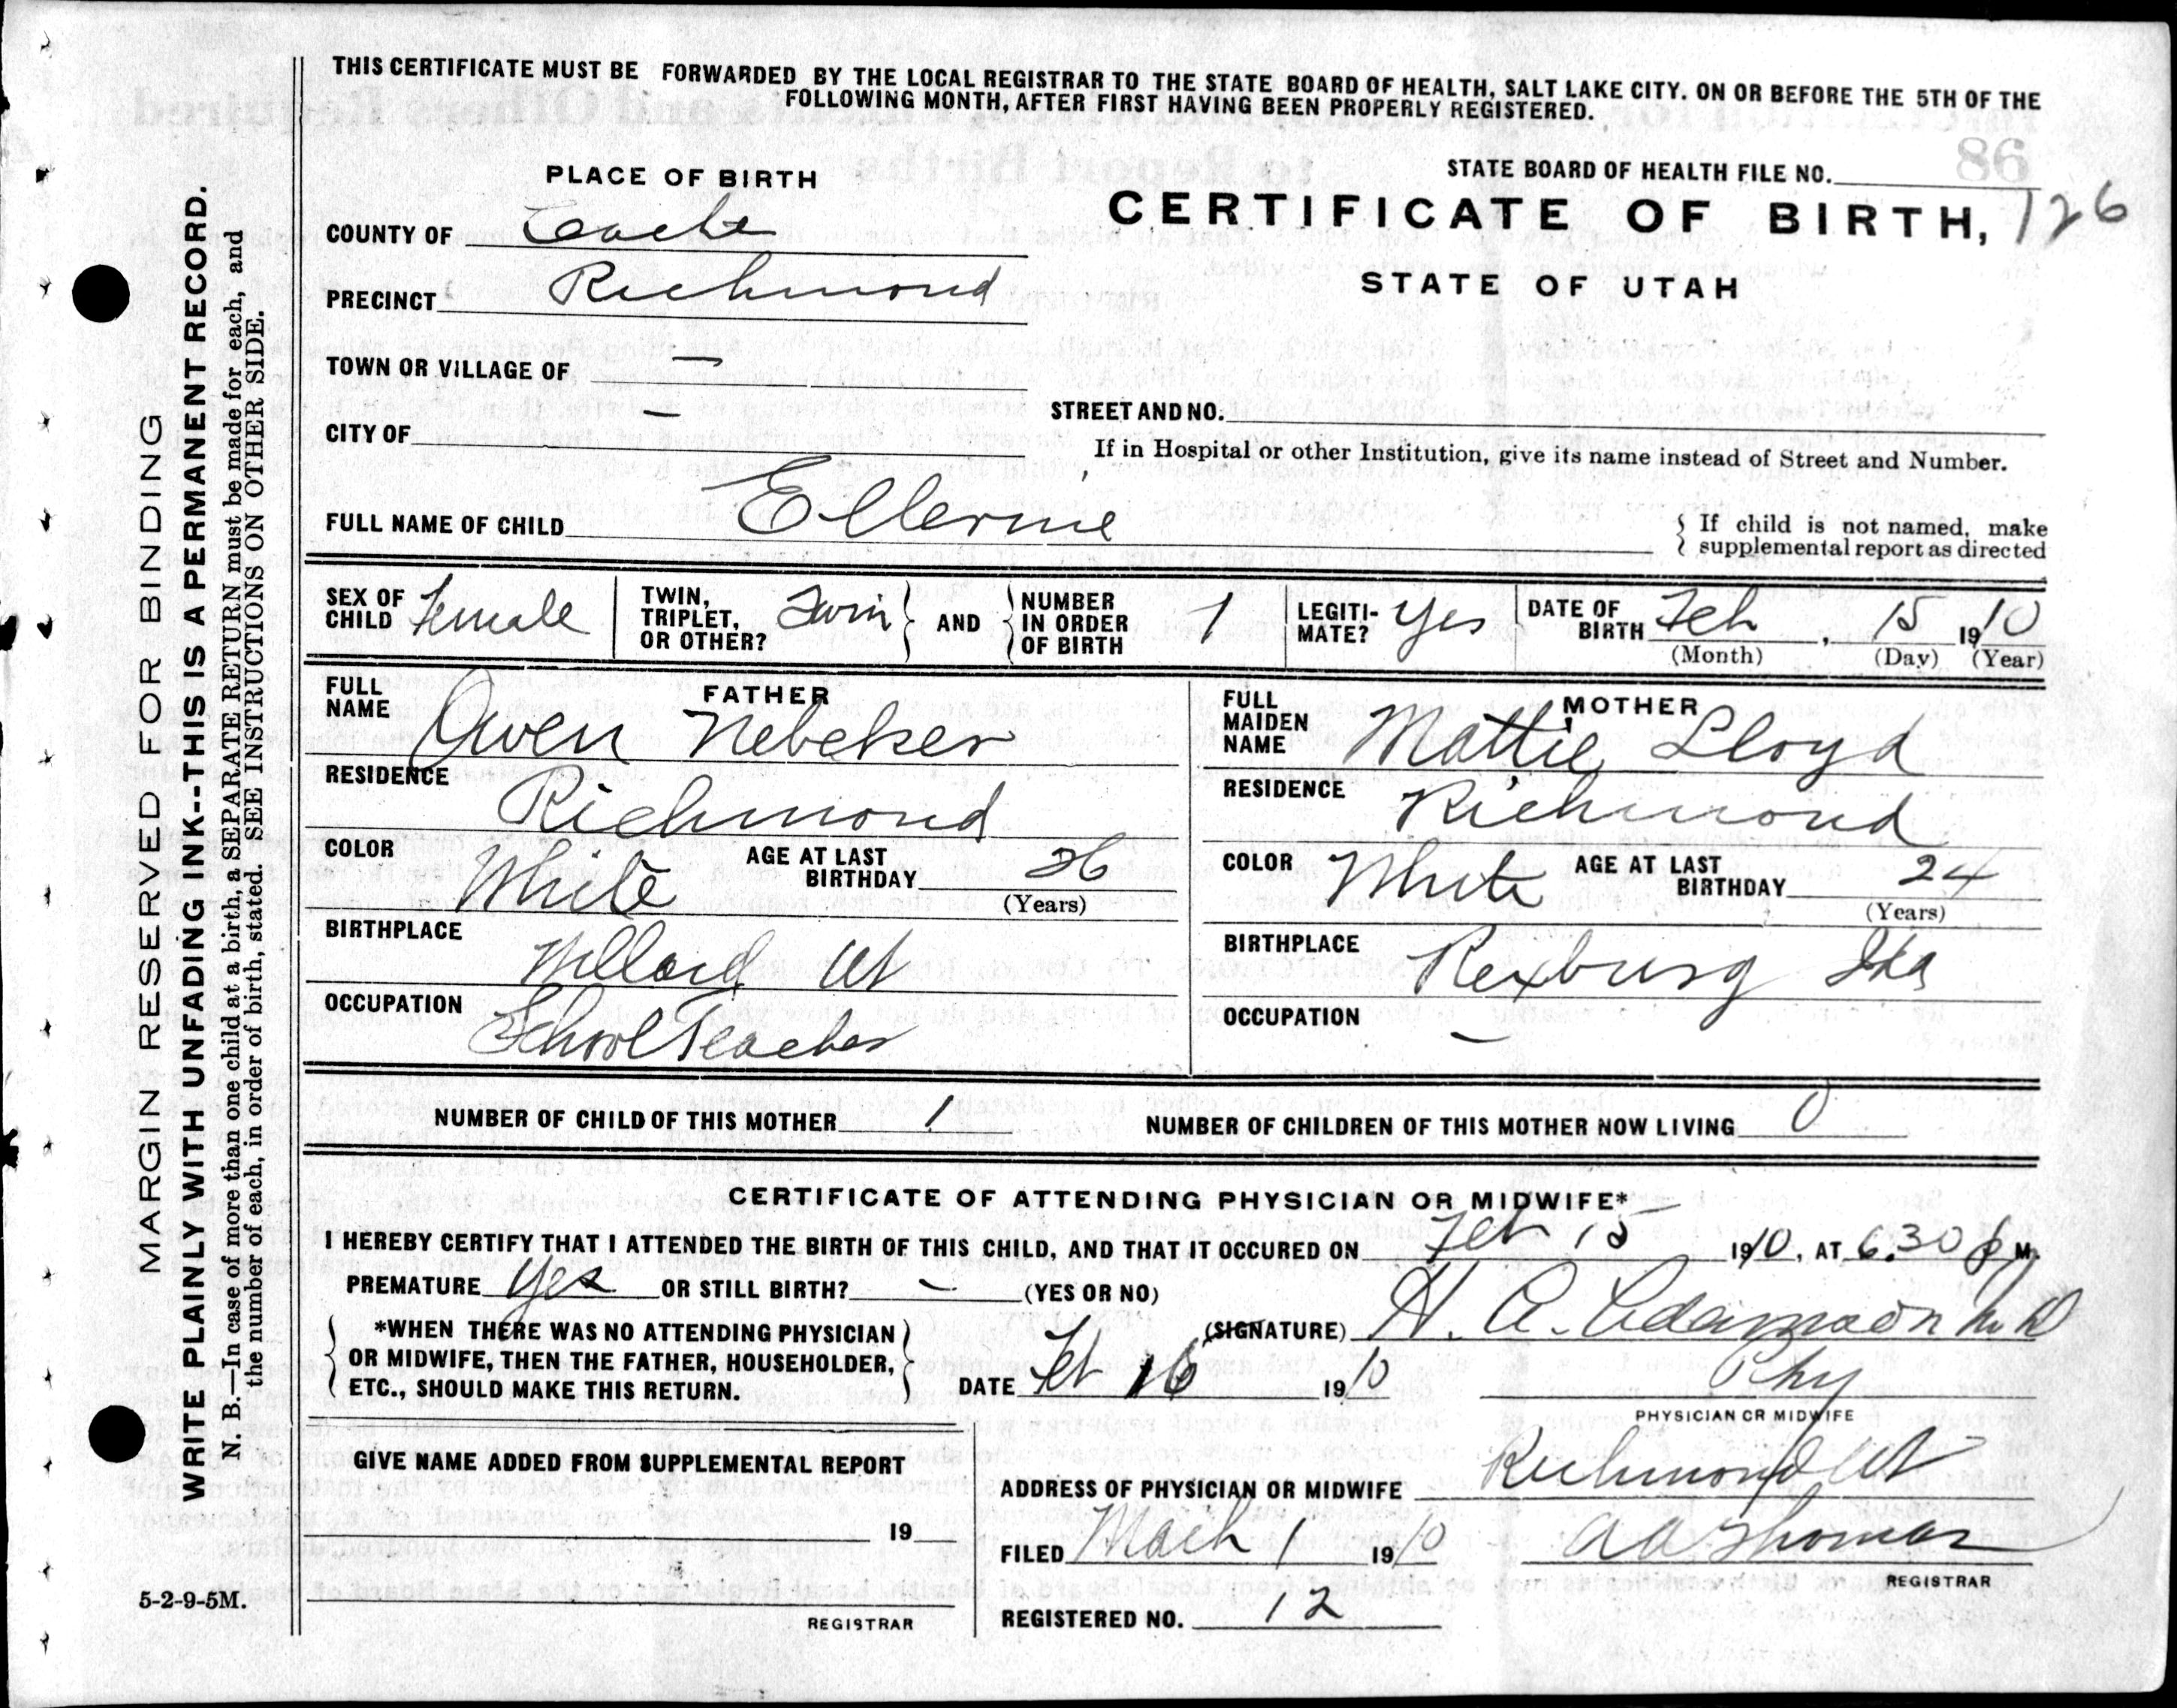 THIS CERTIFICATE MUST BE FORWARDED BY THE LOCAL REGISTRAR TO THE STATE BOARD OF HEALTH, SALT LAKE CITY. ON OR BEFORE THE 5TH OF THE
FOLLOWING MONTH, AFTER FIRST HAVING BEEN PROPERLY REGISTERED.
PLACE OF BIRTH
STATE BOARD OF HEALTH FILE NO. 86
CERTIFICATE OF BIRTH, 126
STATE OF UTAH
COUNTY OF Cache
PRECINCT Richmond
TOWN OR VILLAGE OF —
CITY OF —
STREET AND NO.
If in Hospital or other Institution, give its name instead of Street and Number.
FULL NAME OF CHILD Ellerine
If child is not named, make
supplemental report as directed
SEX OF CHILD Female
TWIN, TRIPLET, OR OTHER? Twin
AND NUMBER IN ORDER OF BIRTH 1
LEGITI-MATE? Yes
DATE OF BIRTH Feb, 15 1910
(Month) (Day) (Year)
FATHER
FULL NAME Owen Nebeker
RESIDENCE Richmond
COLOR White AGE AT LAST BIRTHDAY 26
(Years)
BIRTHPLACE Willard Ut
OCCUPATION School Teacher
MOTHER
FULL MAIDEN NAME Mattie Lloyd
RESIDENCE Richmond
COLOR White AGE AT LAST BIRTHDAY 24
(Years)
BIRTHPLACE Rexburg Ida
OCCUPATION —
NUMBER OF CHILD OF THIS MOTHER 1
NUMBER OF CHILDREN OF THIS MOTHER NOW LIVING 0
CERTIFICATE OF ATTENDING PHYSICIAN OR MIDWIFE*
I HEREBY CERTIFY THAT I ATTENDED THE BIRTH OF THIS CHILD, AND THAT IT OCCURED ON Feb 15 1910, AT 6.30 P M.
PREMATURE Yes OR STILL BIRTH? — (YES OR NO)
*WHEN THERE WAS NO ATTENDING PHYSICIAN
OR MIDWIFE, THEN THE FATHER, HOUSEHOLDER,
ETC., SHOULD MAKE THIS RETURN.
(SIGNATURE) H. A. Adamson M D
DATE Feb 16 1910
Phy
PHYSICIAN OR MIDWIFE
GIVE NAME ADDED FROM SUPPLEMENTAL REPORT
19
REGISTRAR
ADDRESS OF PHYSICIAN OR MIDWIFE Richmond Ut
FILED Mach 1 1910
A A Thomas
REGISTRAR
REGISTERED NO. 12
5-2-9-5M.
MARGIN RESERVED FOR BINDING
WRITE PLAINLY WITH UNFADING INK--THIS IS A PERMANENT RECORD.
N. B.—In case of more than one child at a birth, a SEPARATE RETURN must be made for each, and
the number of each, in order of birth, stated. SEE INSTRUCTIONS ON OTHER SIDE.